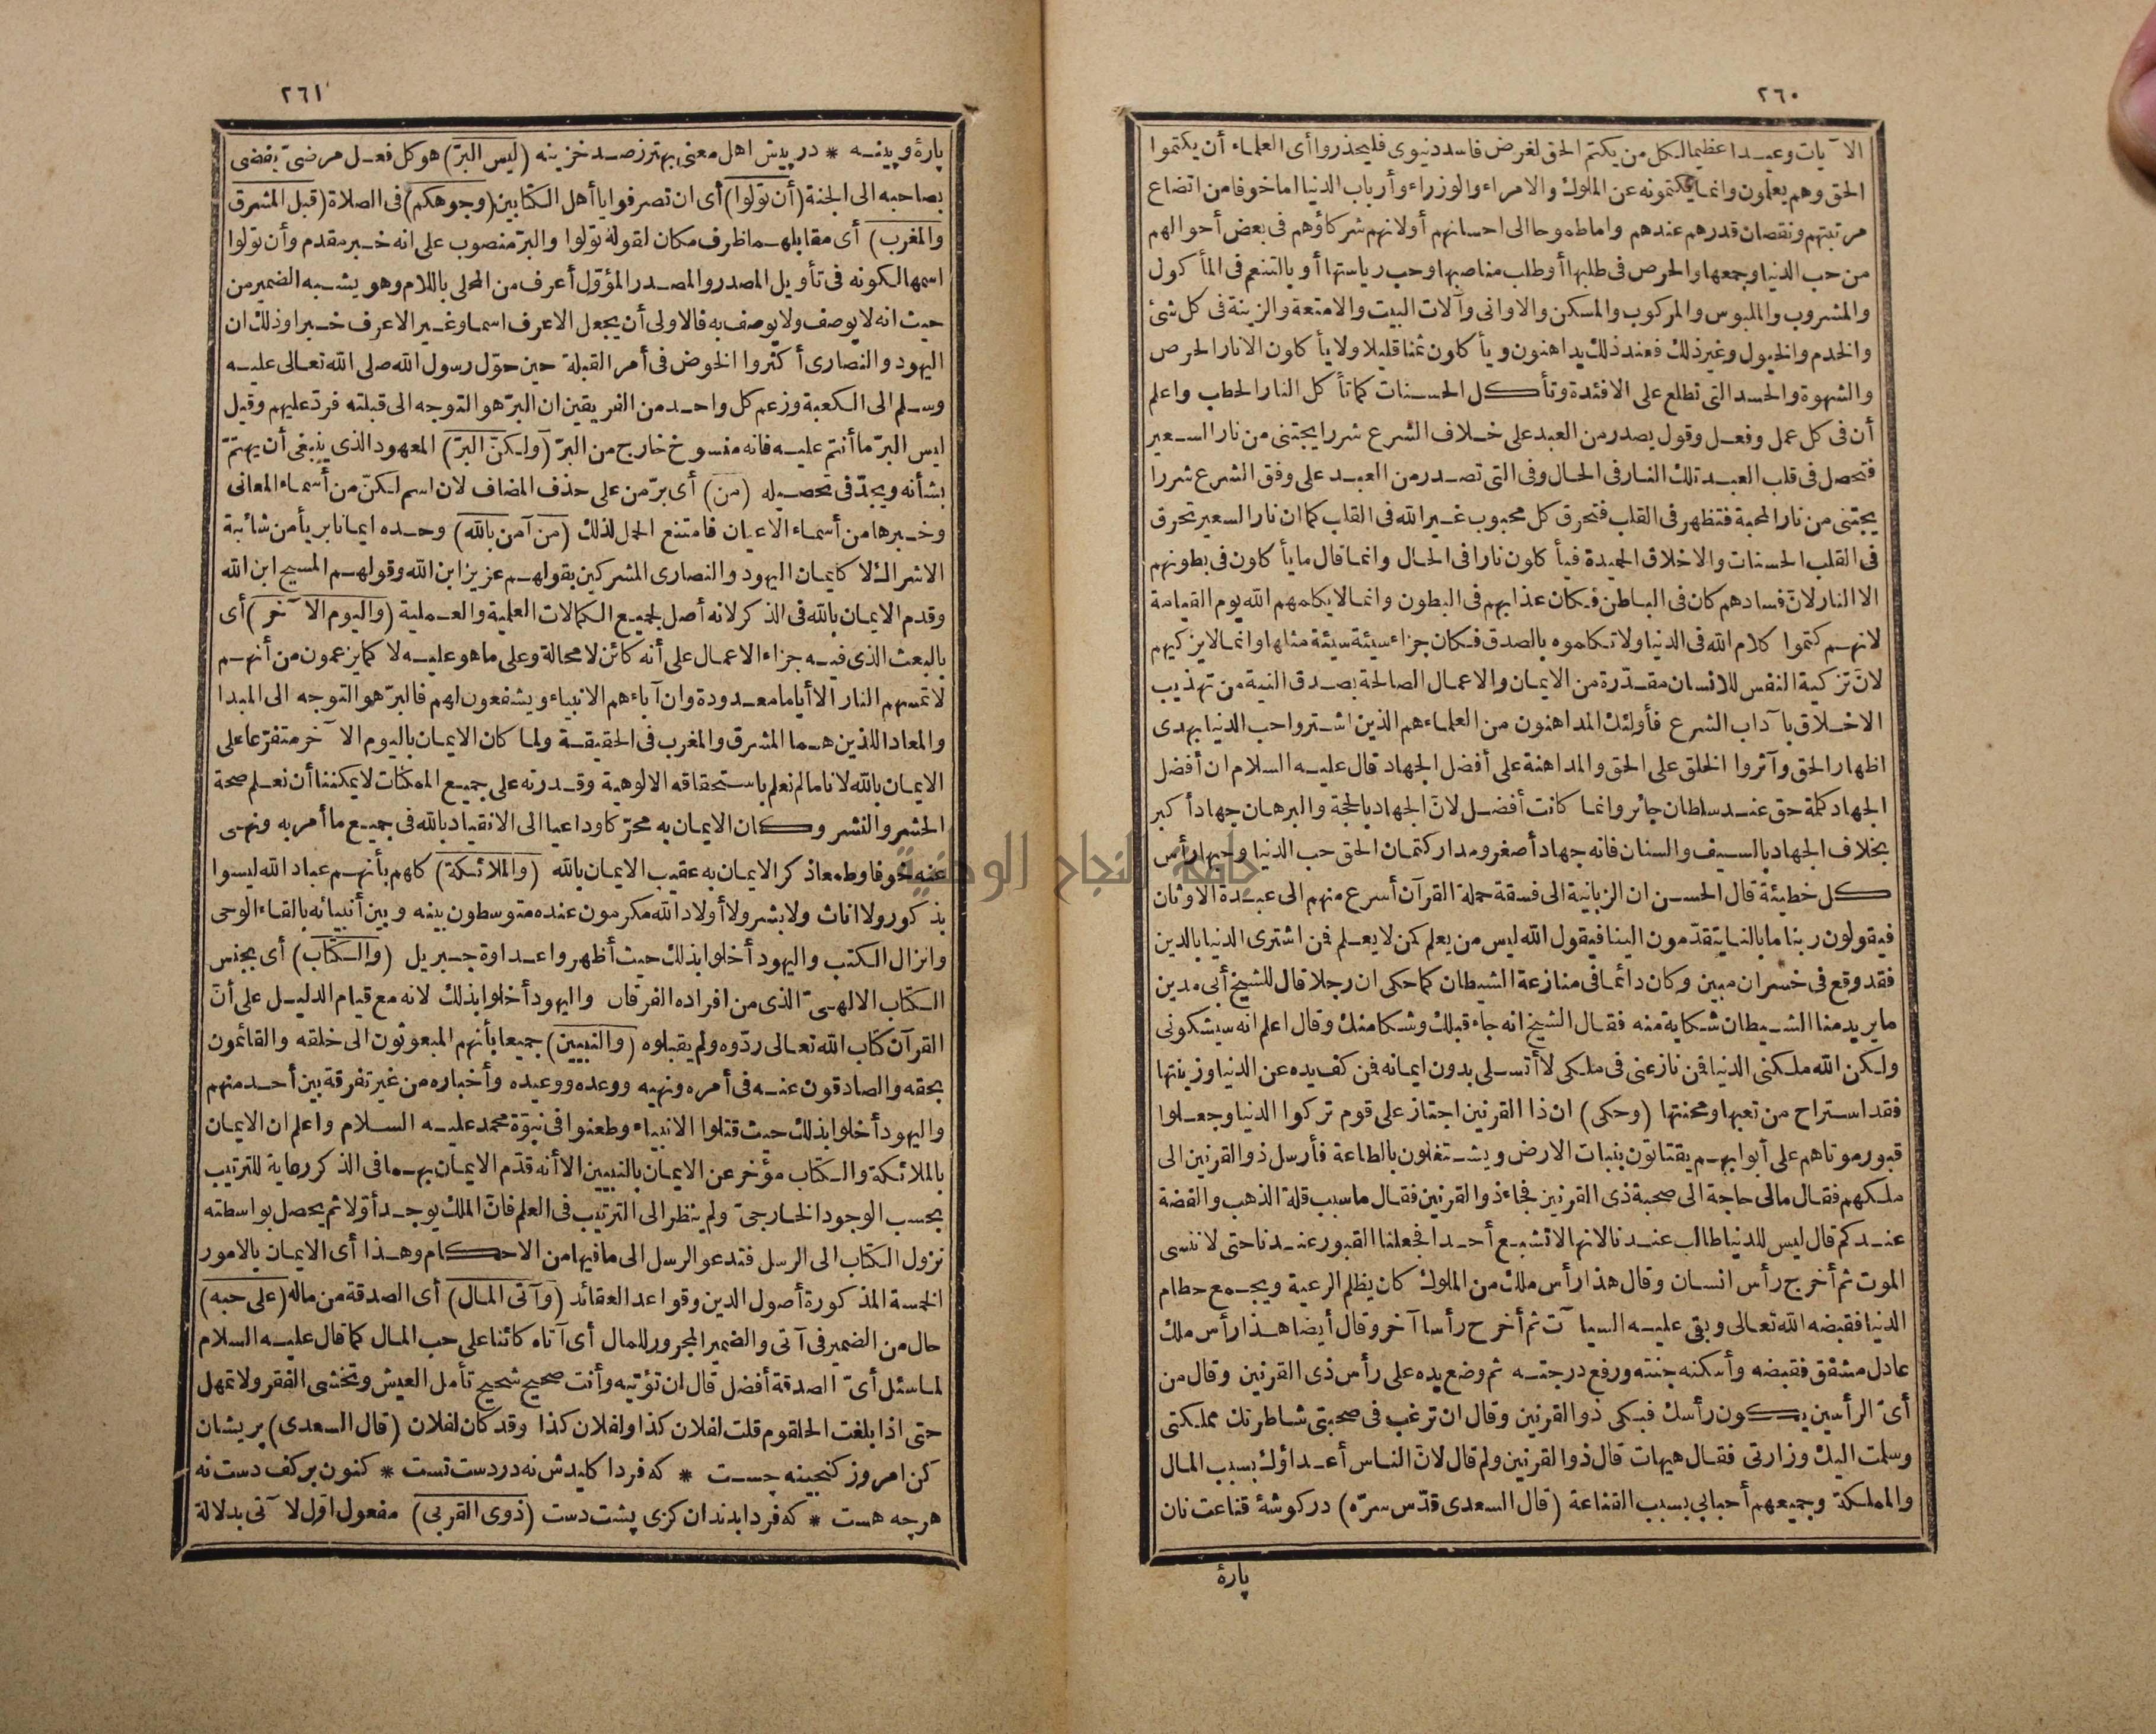 ٢٦٠
الآيات وعيدا عظيما لكل من يكتم الحق لغرض فاسد دنيوى فليحذروا أى العلماء أن يكتموا
الحق وهم يعلمون وانما يكتمونه عن الملوك والامراء والوزراء وأرباب الدنيا اما خوفا من اتضاع
مرتبتهم ونقصان قدرهم عندهم واما طموحا الى احسانهم أو لانهم شركاؤهم فى بعض أحوالهم
من حب الدنيا وجمعها والحرص فى طلبها أو طلب مناصبها وحب رياستها أو بالتنعم فى المأكول
والمشروب والملبوس والمركوب والمسكن والاوانى وآلات البيت والامتعة والزينة فى كل شئ
والخدم والخيول وغير ذلك فعند ذلك يداهنون ويأكلون ثمنا قليلا ولا يأكلون الا نار الحرص
والشهوة والحسد التى تطلع على الافئدة وتأكل الحسنات كما تأكل النار الحطب واعلم
أن فى كل عمل وفعل وقول يصدر من العبد على خلاف الشرع شررا يجتنى من نار السعير
فتحصل فى قلب العبد تلك النار فى الحال وفى التى تصدر من العبد على وفق الشرع شررا
يجتنى من نار المحبة فتظهر فى القلب فتحرق كل محبوب غير الله فى القلب كما ان نار السعير تحرق
فى القلب الحسنات والاخلاق الحميدة فيأكلون نارا فى الحال وانما قال ما يأكلون فى بطونهم
الا النار لان فسادهم كان فى الباطن فكان عذابهم فى البطون وانما لا يكلمهم الله يوم القيامة
لانهم كتموا كلام الله فى الدنيا ولا تكلموه بالصدق فكان جزاء سيئة سيئة مثلها وانما لا يزكيهم
لان تزكية النفس للانسان مقدّرة من الايمان والاعمال الصالحة بصدق النية من تهذيب
الاخلاق بآداب الشرع فأولئك المداهنون من العلماء هم الذين اشتروا حب الدنيا بهدى
اظهار الحق وآثروا الخلق على الحق والمداهنة على أفضل الجهاد قال عليه السلام ان أفضل
الجهاد كلمة حق عند سلطان جائر وانما كانت أفضل لان الجهاد بالحجة والبرهان جهاد أكبر
بخلاف الجهاد بالسيف والسنان فانه جهاد أصغر ومدار كتمان الحق حب الدنيا وحبها رأس
كل خطيئة قال الحسن ان الزبانية الى فسقة حملة القرآن أسرع منهم الى عبدة الاوثان
فيقولون ربنا ما بالنا يتقدّمون الينا فيقول الله ليس من يعلم كمن لا يعلم فمن اشترى الدنيا بالدين
فقد وقع فى خسران مبين وكان دائما فى منازعة الشيطان كما حكى ان رجلا قال للشيخ أبى مدين
ما يريد منا الشيطان شكاية منه فقال الشيخ انه جاء قبلك وشكا منك وقال اعلم انه سيشكونى
ولكن الله ملكنى الدنيا فمن نازعنى فى ملكى لا أتسلى بدون ايمانه فمن كف يده عن الدنيا وزينتها
فقد استراح من تعبها ومحنتها (وحكى) ان ذا القرنين اجتاز على قوم تركوا الدنيا وجعلوا
قبور موتاهم على أبوابهم يقتاتون بنبات الارض ويشتغلون بالطاعة فأرسل ذو القرنين الى
ملكهم فقال مالى حاجة الى صحبة ذى القرنين فجاء ذو القرنين فقال ما سبب قلة الذهب والفضة
عندكم قال ليس للدنيا طالب عندنا لانها لا تشبع أحدا فجعلنا القبور عندنا حتى لا ننسى
الموت ثم أخرج رأس انسان وقال هذا رأس ملك من الملوك كان يظلم الرعية ويجمع حطام
الدنيا فقبضه الله تعالى وبقى عليه السيآت ثم أخرج رأسا آخر وقال أيضا هذا رأس ملك
عادل مشفق فقبضه وأسكنه جنته ورفع درجته ثم وضع يده على رأس ذى القرنين وقال من
أىّ الرأسين يكون رأسك فبكى ذو القرنين وقال ان ترغب فى صحبتى شاطرتك مملكتى
وسلمت اليك وزارتى فقال هيهات قال ذو القرنين ولم قال لان الناس أعداؤك بسبب المال
والمملكة وجميعهم أحبابى بسبب القناعة (قال السعدى قدّس سرّه) دركوشهٔ قناعت نان
پارهٔ
٢٦١
پارهٔ وپينه * در پيش اهل معنى بهتر زصد خزينه (ليس البرّ) هو كل فعل مرضىّ يفضى
بصاحبه الى الجنة (أن تولوا) أى ان تصرفوا يا أهل الكتابين (وجوهكم) فى الصلاة (قبل المشرق
والمغرب) أى مقابلهما ظرف مكان لقوله تولوا والبرّ منصوب على انه خبر مقدم وأن تولوا
اسمها لكونه فى تأويل المصدر والمصدر المؤوّل أعرف من المحلى باللام وهو يشبه الضمير من
حيث انه لا يوصف ولا يوصف به فالاولى أن يجعل الاعرف اسما وغير الاعرف خبرا وذلك ان
اليهود والنصارى أكثروا الخوض فى أمر القبلة حين حوّل رسول الله صلى الله تعالى عليه
وسلم الى الكعبة وزعم كل واحد من الفريقين ان البرّ هو التوجه الى قبلته فردّ عليهم وقيل
ليس البرّ ما أنتم عليه فانه منسوخ خارج من البرّ (ولكنّ البرّ) المعهود الذى ينبغى أن يهتمّ
بشأنه ويجدّ فى تحصيله (من) أى برّ من على حذف المضاف لان اسم لكنّ من أسماء المعانى
وخبرها من أسماء الاعيان فامتنع الحمل لذلك (من آمن بالله) وحده ايمانا بريأ من شائبة
الاشراك لا كايمان اليهود والنصارى المشركين بقولهم عزيز ابن الله وقولهم المسيح ابن الله
وقدم الايمان بالله فى الذكر لانه أصل لجميع الكمالات العلمية والعملية (واليوم الآخر) أى
بالبعث الذى فيه جزاء الاعمال على أنه كائن لا محالة وعلى ما هو عليه لا كما يزعمون من أنهم
لا تمسهم النار الا أياما معدودة وان آباءهم الانبياء ويشفعون لهم فالبرّ هو التوجه الى المبدا
والمعاد اللذين هما المشرق والمغرب فى الحقيقة ولما كان الايمان باليوم الآخر متفرّعا على
الايمان بالله لانا ما لم نعلم باستحقاقه الالوهية وقدرته على جميع الممكنات لا يمكننا أن نعلم صحة
الحشر والنشر وكان الايمان به محرّكا وداعيا الى الانقياد بالله فى جميع ما أمر به ونهى
عنه خوفا وطمعا ذكر الايمان به عقيب الايمان بالله (والملائكة) كلهم بأنهم عباد الله ليسوا
بذكور ولا اناث ولا بشر ولا أولاد الله مكرمون عنده متوسطون بينه وبين أنبيائه بالقاء الوحى
وانزال الكتب واليهود أخلوا بذلك حيث أظهروا عداوة جبريل (والكتاب) أى بجنس
الكتاب الالهىّ الذى من افراده الفرقان واليهود أخلوا بذلك لانه مع قيام الدليل على أنّ
القرآن كتاب الله تعالى ردّوه ولم يقبلوه (والنبيين) جميعا بأنهم المبعوثون الى خلقه والقائمون
بحقه والصادقون عنه فى أمره ونهيه ووعده ووعيده وأخباره من غير تفرقة بين أحد منهم
واليهود أخلوا بذلك حيث قتلوا الانبياء وطعنوا فى نبوّة محمد عليه السلام واعلم ان الايمان
بالملائكة والكتاب مؤخر عن الايمان بالنبيين الا أنه قدّم الايمان بهما فى الذكر رعاية للترتيب
بحسب الوجود الخارجىّ ولم ينظر الى الترتيب فى العلم فانّ الملك يوجد أوّلا ثم يحصل بواسطته
نزول الكتاب الى الرسل فتدعو الرسل الى ما فيها من الاحكام وهذا أى الايمان بالامور
الخمسة المذكورة أصول الدين وقواعد العقائد (وآتى المال) أى الصدقة من ماله (على حبه)
حال من الضمير فى آتى والضمير المجرور للمال أى آتاه كائنا على حب المال كما قال عليه السلام
لما سئل أىّ الصدقة أفضل قال ان تؤتيه وأنت صحيح شحيح تأمل العيش وتخشى الفقر ولا تمهل
حتى اذا بلغت الحلقوم قلت لفلان كذا ولفلان كذا وقد كان لفلان (قال السعدى) پريشان
كن امروز كنجينه چست * كه فردا كليدش نه در دست تست * كنون بر كف دست نه
هرچه هست * كه فردا بدندان كزى پشت دست (ذوى القربى) مفعول اوّل لآتى بدلالة
جامعة النجاح الوطنية